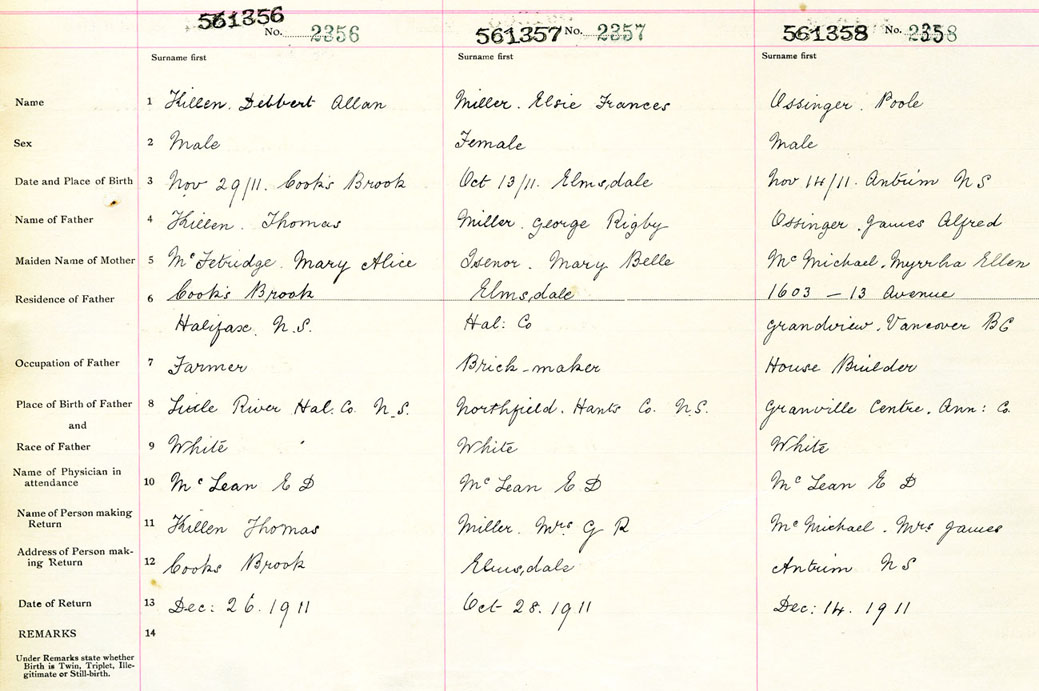 561356 No. 2356 561357 No. 2357 561358 No. 2358
Surname first Surname first Surname first
Name 1 Killen. Delbert Allan Miller. Elsie Frances Ossinger. Poole
Sex 2 Male Female Male
Date and Place of Birth 3 Nov 29/11. Cook's Brook Oct 13/11. Elmsdale Nov 14/11. Antrim N S
Name of Father 4 Killen. Thomas Miller. George Rigby Ossinger. James Alfred
Maiden Name of Mother 5 McFetridge. Mary Alice Isenor. Mary Belle McMichael. Myrrha Ellen
Residence of Father 6 Cook's Brook Elmsdale 1603 – 13 Avenue
Halifax N.S. Hal: Co Grandview. Vancover BC
Occupation of Father 7 Farmer Brick-maker House Builder
Place of Birth of Father 8 Little River Hal. Co. N.S. Northfield. Hants Co. N.S. Granville Centre. Ann: Co.
and
Race of Father 9 White White White
Name of Physician in
attendance 10 McLean E D McLean E D McLean E D
Name of Person making
Return 11 Killen Thomas Miller. Mrs G R McMichael. Mrs James
Address of Person mak-
ing Return 12 Cooks Brook Elmsdale Antrim N S
Date of Return 13 Dec: 26. 1911 Oct 28. 1911 Dec: 14. 1911
REMARKS 14
Under Remarks state whether
Birth is Twin, Triplet, Ille-
gitimate or Still-birth.